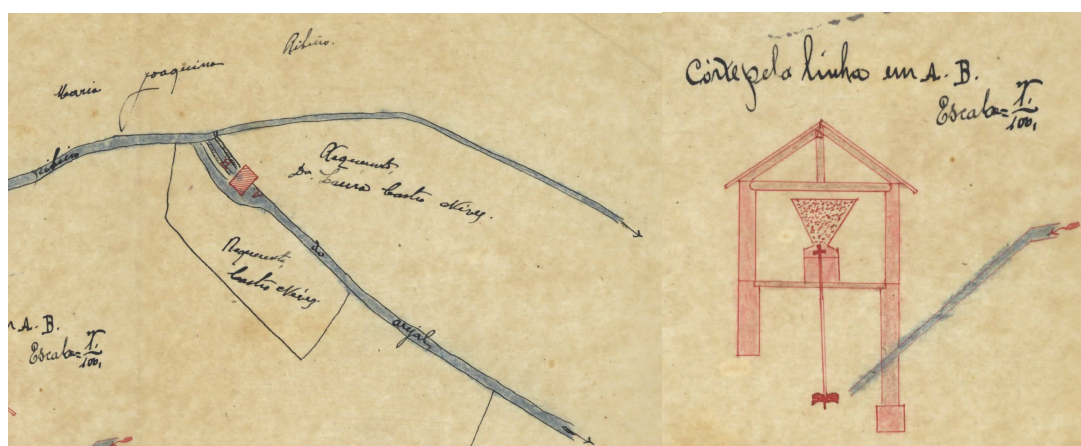 Ribeiro.
Maria Joaquina
ribeiro
Requerente
Dr. Laura Castro Neves.
do
Requerente
Castro Neves.
arejal
m A. B.
Escala = 1/100,
Córte pela linha em A. B.
Escala = 1/100,